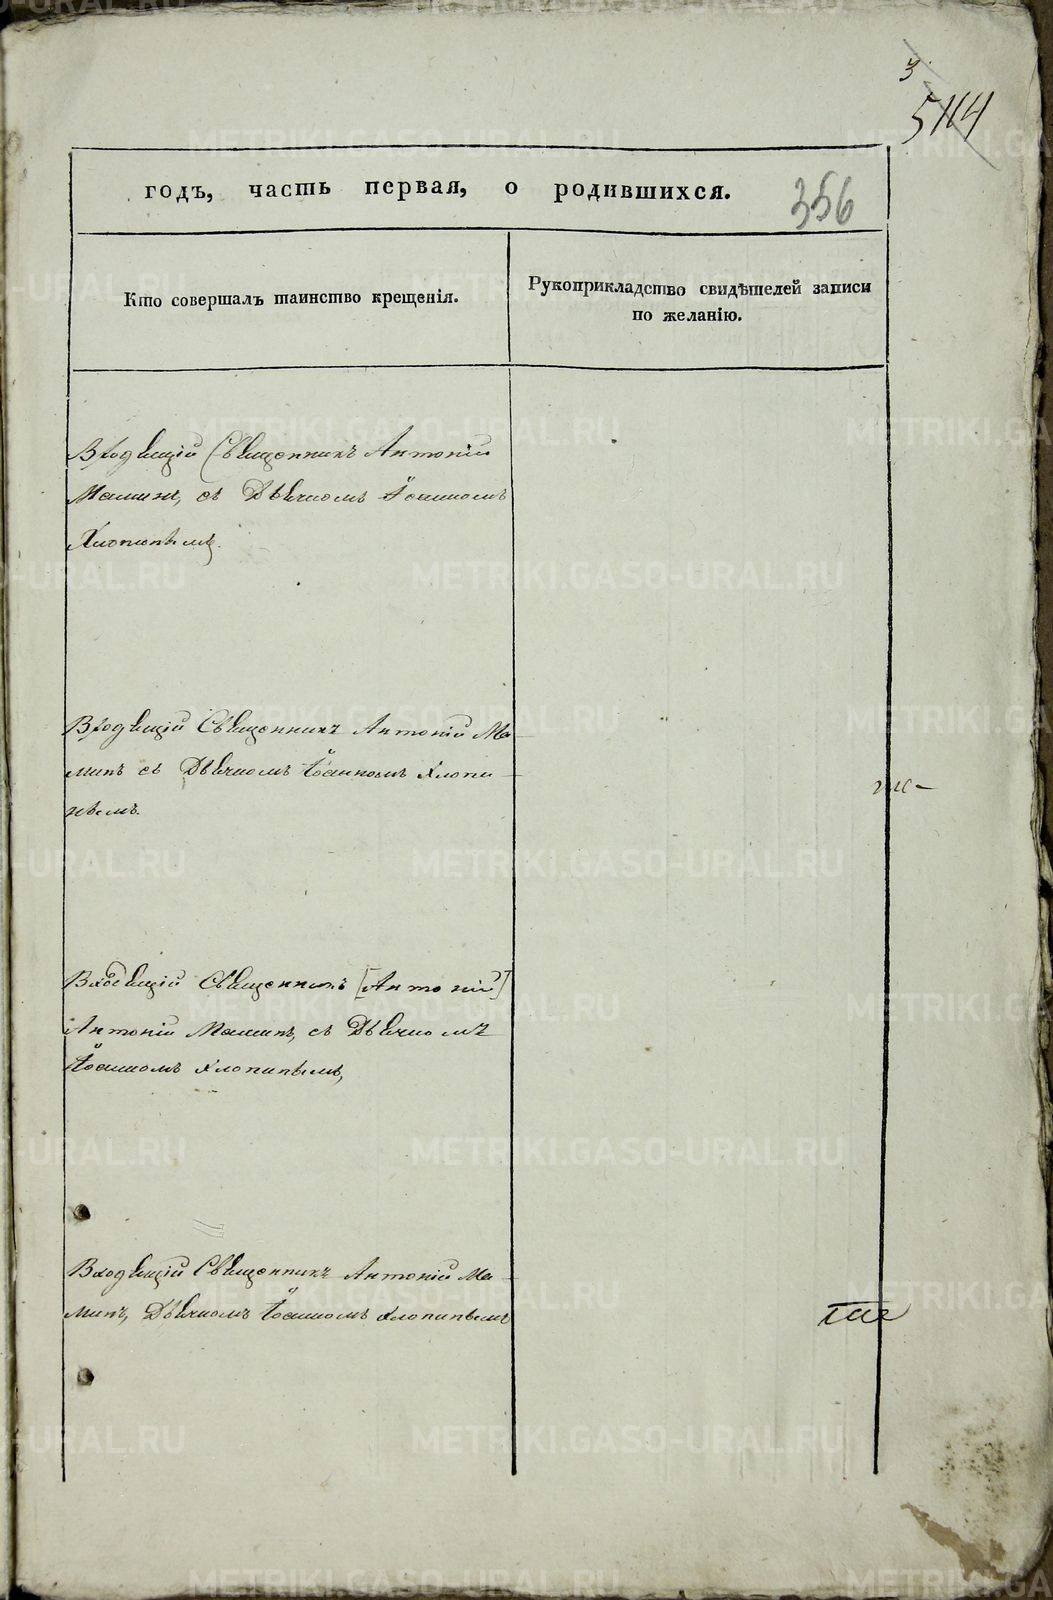 3
5114
годъ, часть первая, о родившихся.
356
Кто совершалъ таинство крещенія.
Рукоприкладство свидѣтелей записи
по желанію.
Входящій Священникъ Антоній
Маминъ, съ Дьячкомъ Іоанномъ
Хлопинымъ.
Входящій Священникъ Антоній Ма-
минъ съ Дьячкомъ Іоанномъ Хлопи-
нымъ.
Входящій Священникъ [Антоній]
Антоній Маминъ, съ Дьячкомъ
Іоанномъ Хлопинымъ,
Входящій Священникъ Антоній Ма-
минъ, Дьячкомъ Іоанномъ Хлопинымъ
METRIKI.GASO-URAL.RU